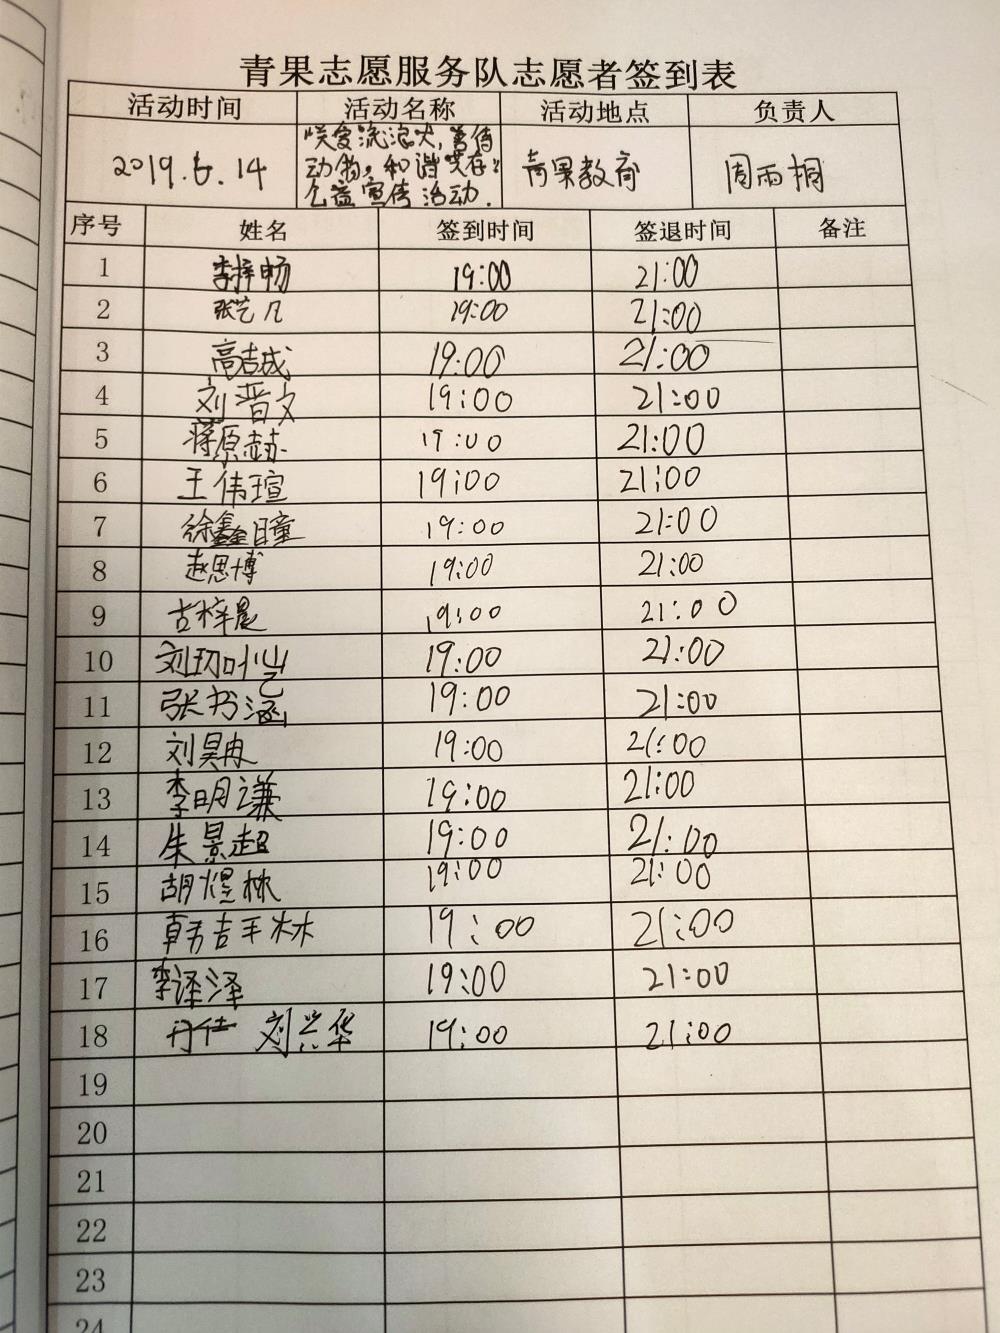 青果志愿服务队志愿者签到表
活动时间 活动名称 活动地点 负责人
2019.6.14 "关爱流浪犬,善待动物,和谐共存"公益宣传活动. 青果教育 周雨桐
序号 姓名 签到时间 签退时间 备注
1 李梓畅 19:00 21:00
2 张艺凡 19:00 21:00
3 高吉成 19:00 21:00
4 刘晋文 19:00 21:00
5 蒋原赫 19:00 21:00
6 王伟瑄 19:00 21:00
7 徐鑫曈 19:00 21:00
8 赵思博 19:00 21:00
9 古梓晨 19:00 21:00
10 刘 19:00 21:00
11 张书涵 19:00 21:00
12 刘昊冉 19:00 21:00
13 李明谦 19:00 21:00
14 朱景超 19:00 21:00
15 胡煜林 19:00 21:00
16 韩吉丰林 19:00 21:00
17 李译泽 19:00 21:00
18 刘兴华 19:00 21:00
19
20
21
22
23
24